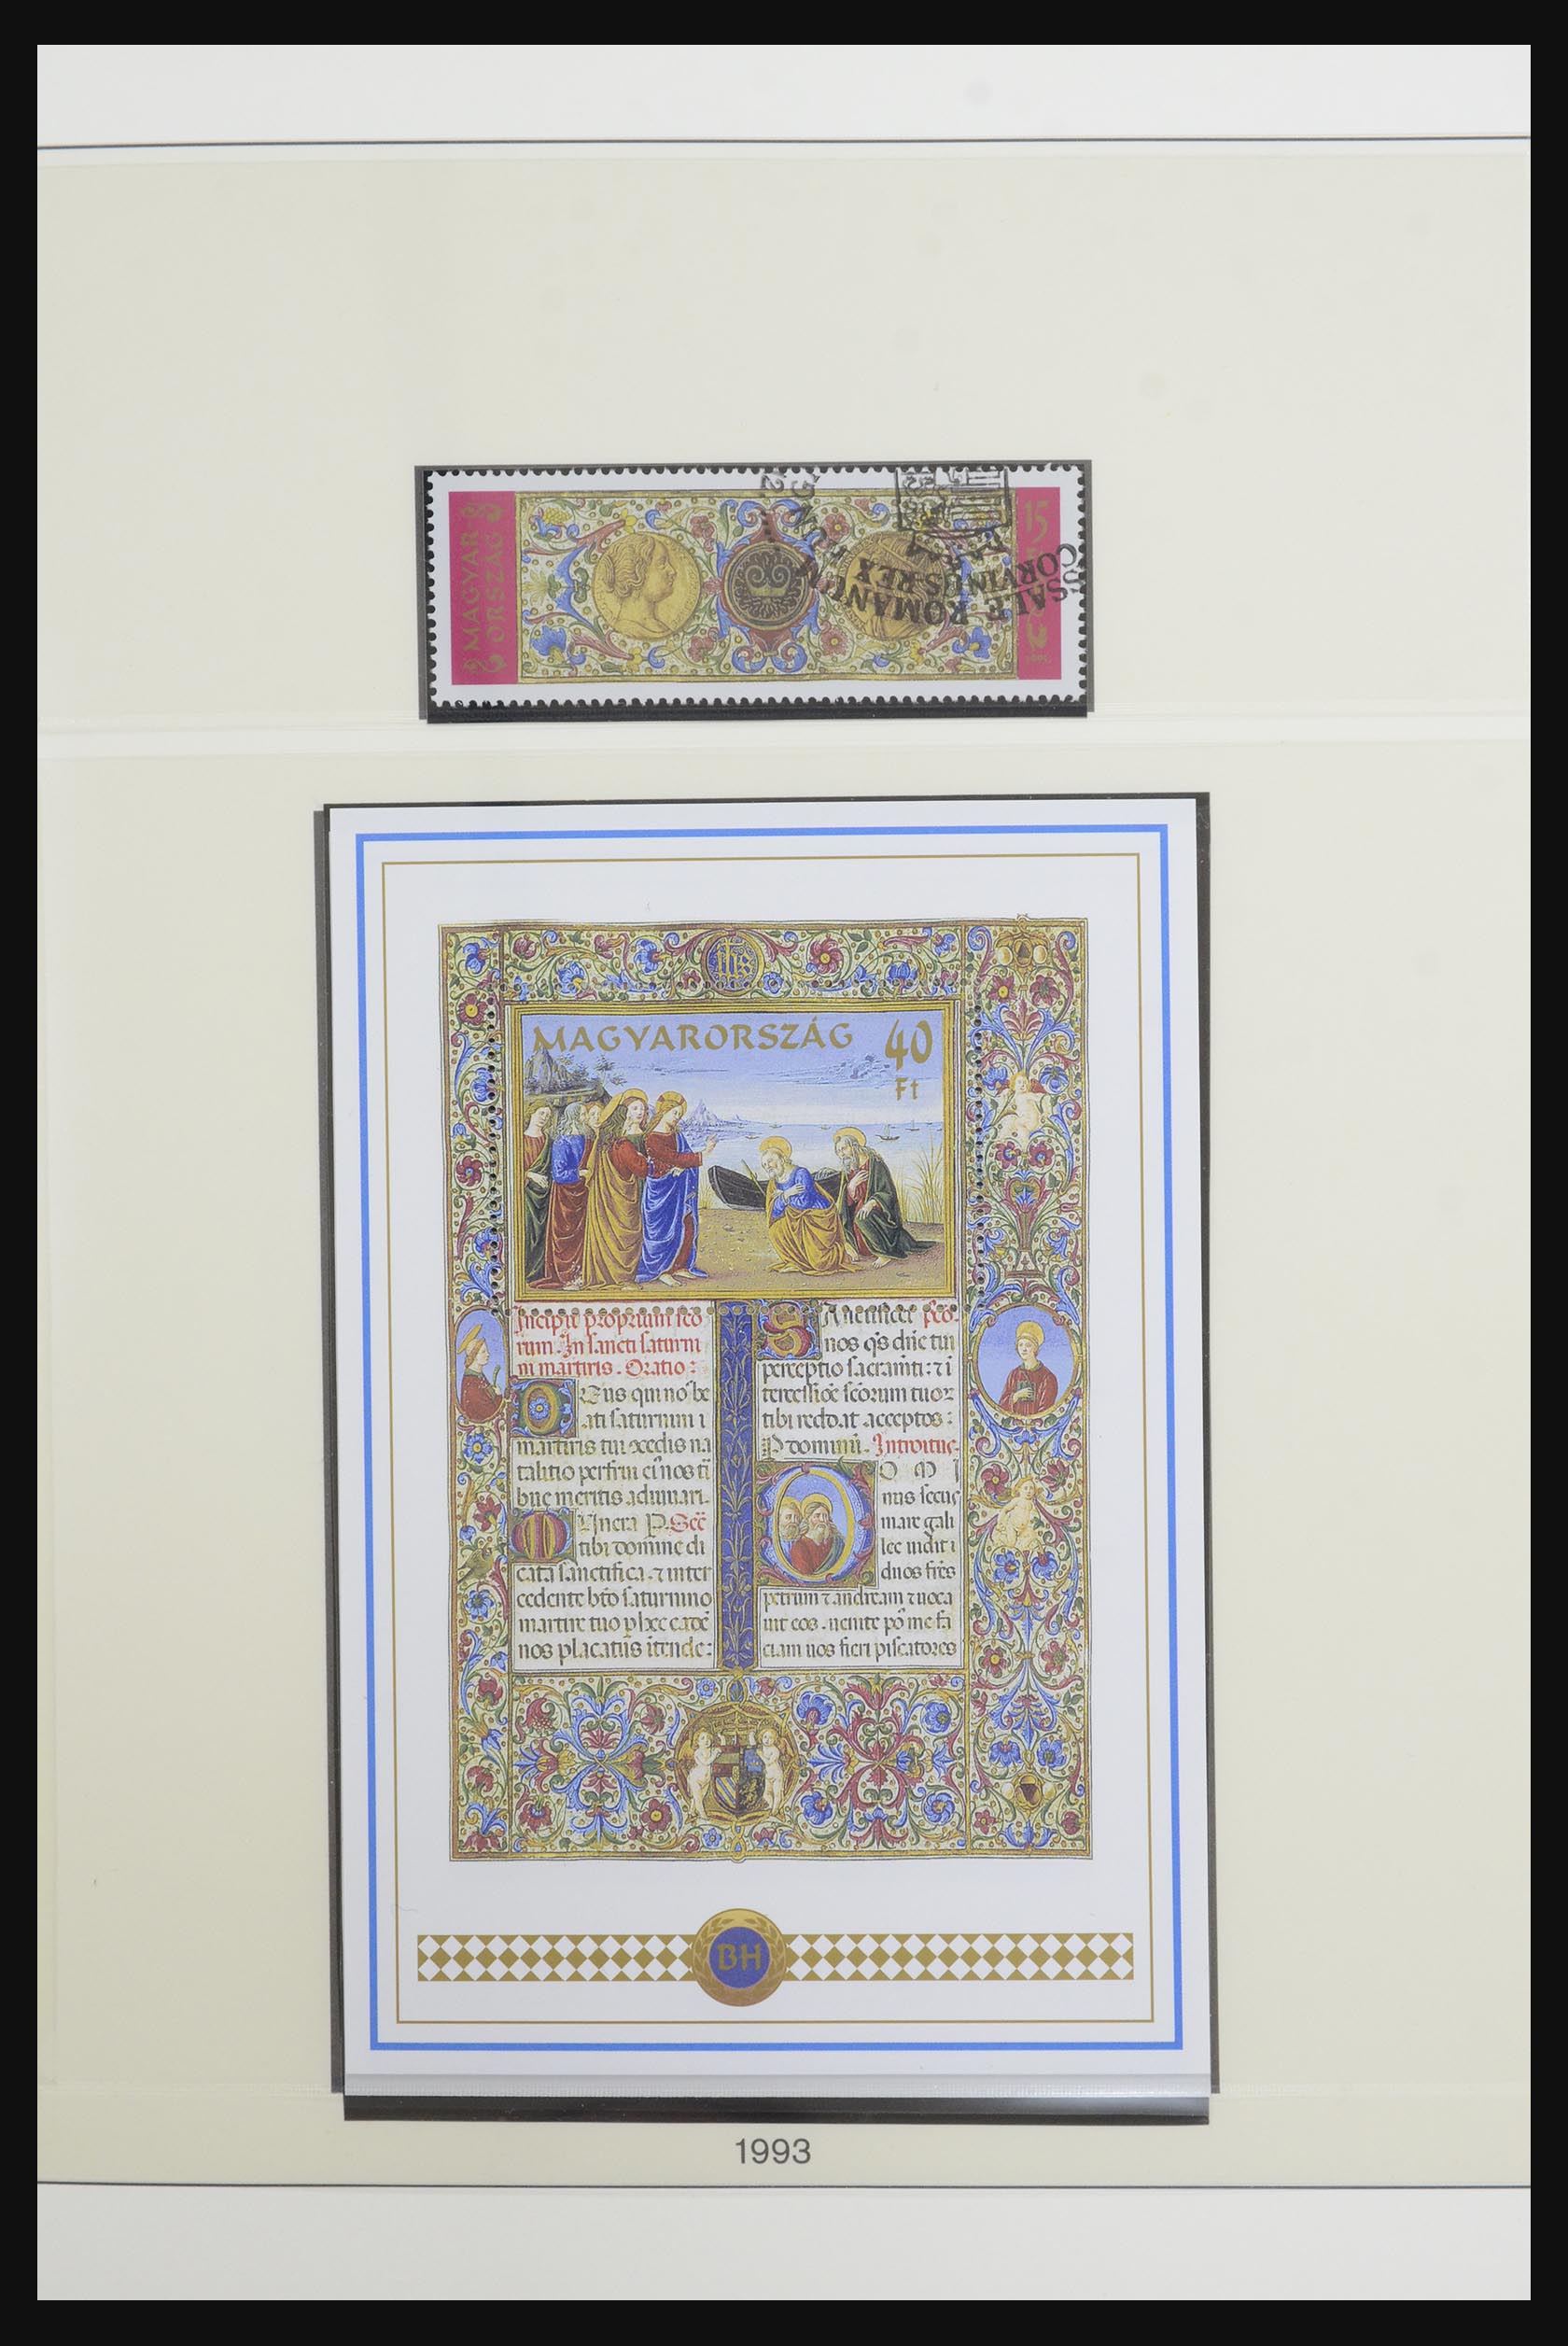 MAGYAR
ORSZÁG
15
SSALE ROMANUM
CORVINUS REX
MAGYARORSZÁG 40
Ft
Incipit proprium sco
rum. In sancti saturni
ni martiris. Oratio:
Eus qui nos be
ati saturnini
martiris tui
talitio perfrui nos
meritis adiuvari.
Unera
tibi domine di
cata sanctifica. et inter
cedente bto saturnino
martire tuo p hec eadē
nos placatus itende:
Anctificet
nos qs dñe tui
perceptio sacramti: et i
tercessioe scorum tuor
tibi reddat acceptos:
P dominū. Introitus.
O M I
nus secus
mare gali
lee vidit
duos frēs
petrum et andream et voca
vit eos. venite pō me fa
ciam vos fieri piscatores
BH
1993